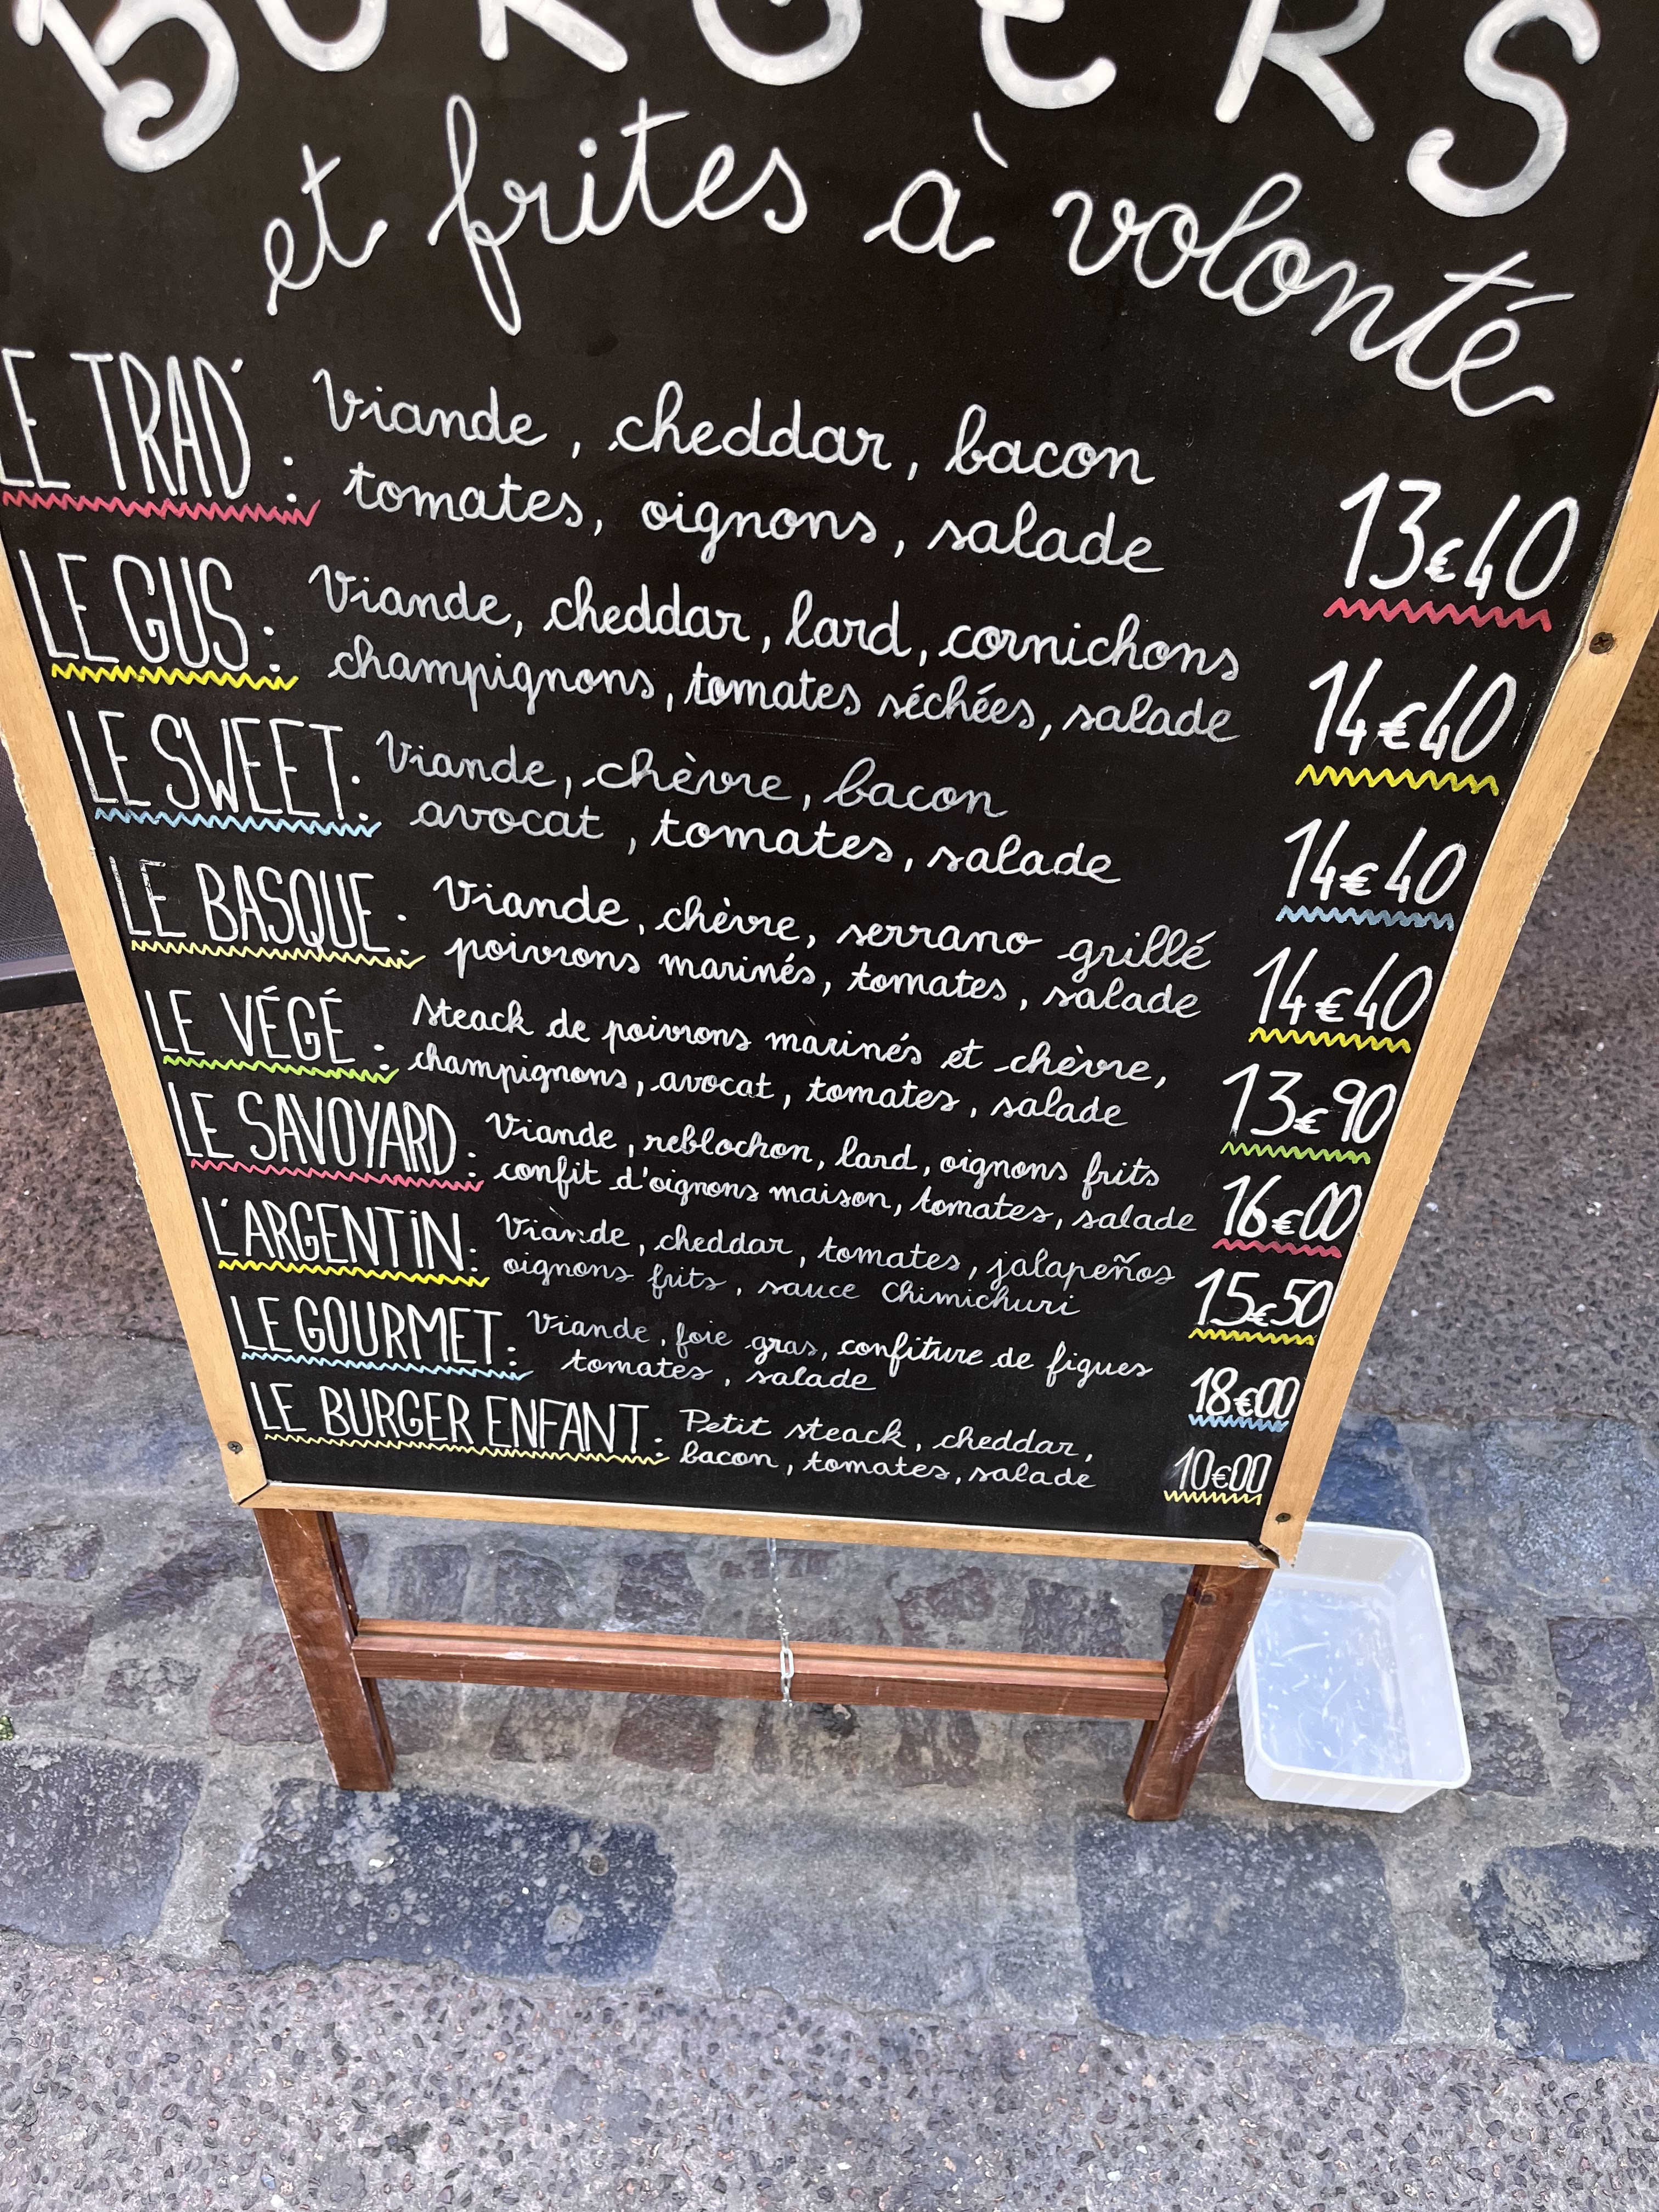 BURGERS
et frites à volonté
LE TRAD' : Viande, cheddar, bacon
tomates, oignons, salade 13€40
LE GUS : Viande, cheddar, lard, cornichons
champignons, tomates séchées, salade 14€40
LE SWEET : Viande, chèvre, bacon
avocat, tomates, salade 14€40
LE BASQUE : Viande, chèvre, serrano grillé
poivrons marinés, tomates, salade 14€40
LE VÉGÉ : Steack de poivrons marinés et chèvre,
champignons, avocat, tomates, salade 13€90
LE SAVOYARD : Viande, reblochon, lard, oignons frits
confit d'oignons maison, tomates, salade 16€00
L'ARGENTiN : Viande, cheddar, tomates, jalapeños
oignons frits, sauce Chimichuri 15€50
LE GOURMET : Viande, foie gras, confiture de figues
tomates, salade 18€00
LE BURGER ENFANT : Petit steack, cheddar,
bacon, tomates, salade 10€00